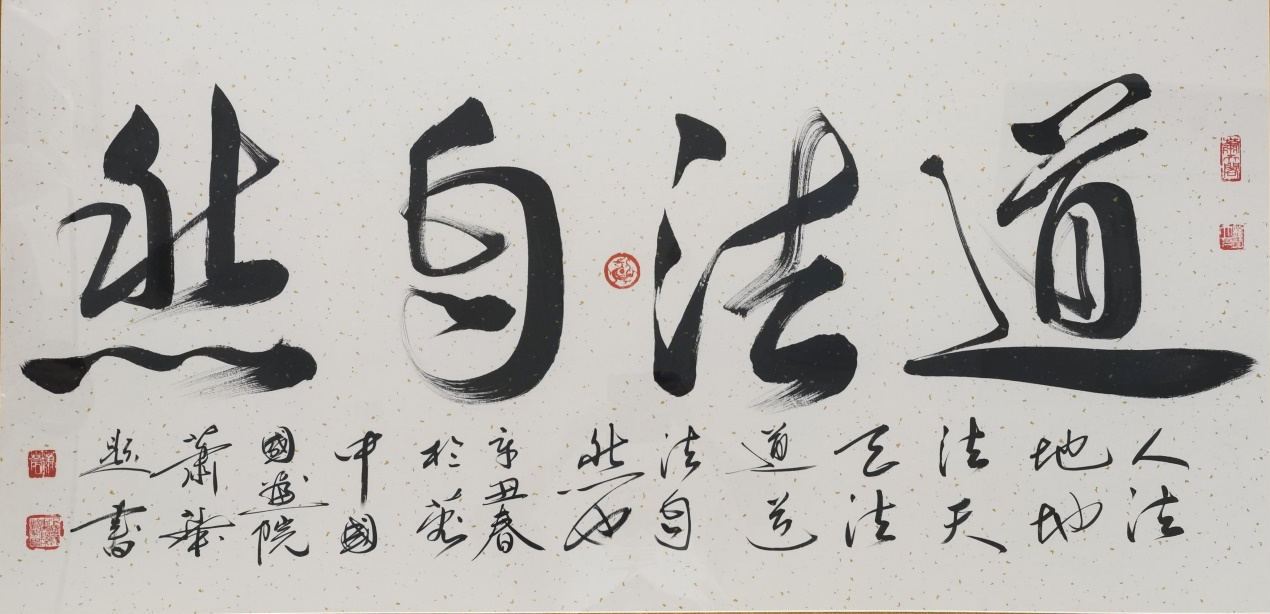 道法自然
人法
地地
法天
天法
道道
法自
然也
辛丑春
於
中國
國畫院
蕭華
題書